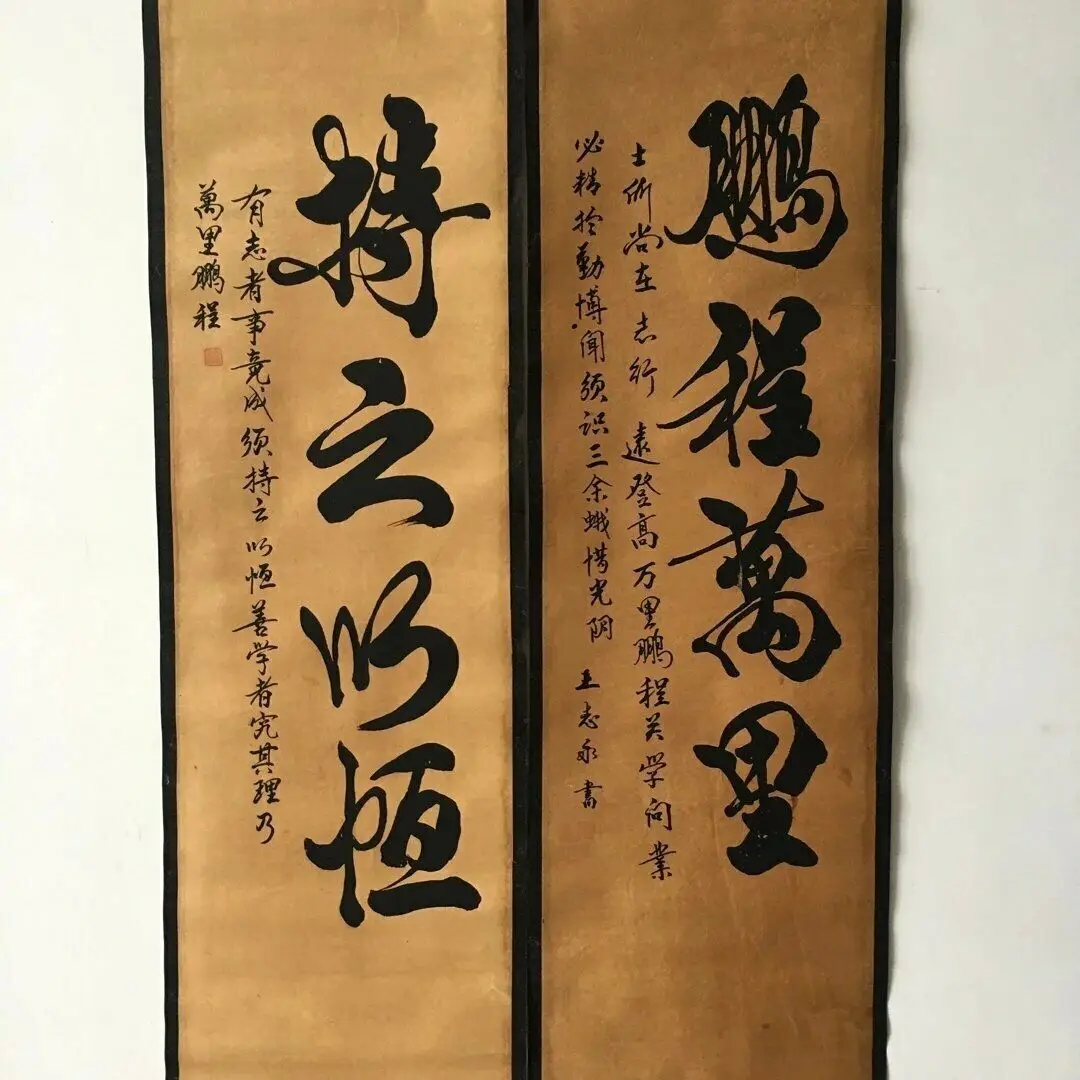 鹏程萬里
士所尚在志行遠登高万里鹏程关学问業
必精於勤博闻须识三余蛾惜光阴 王志永書
持之以恒
有志者事竟成须持之以恒善学者究其理乃
萬里鹏程